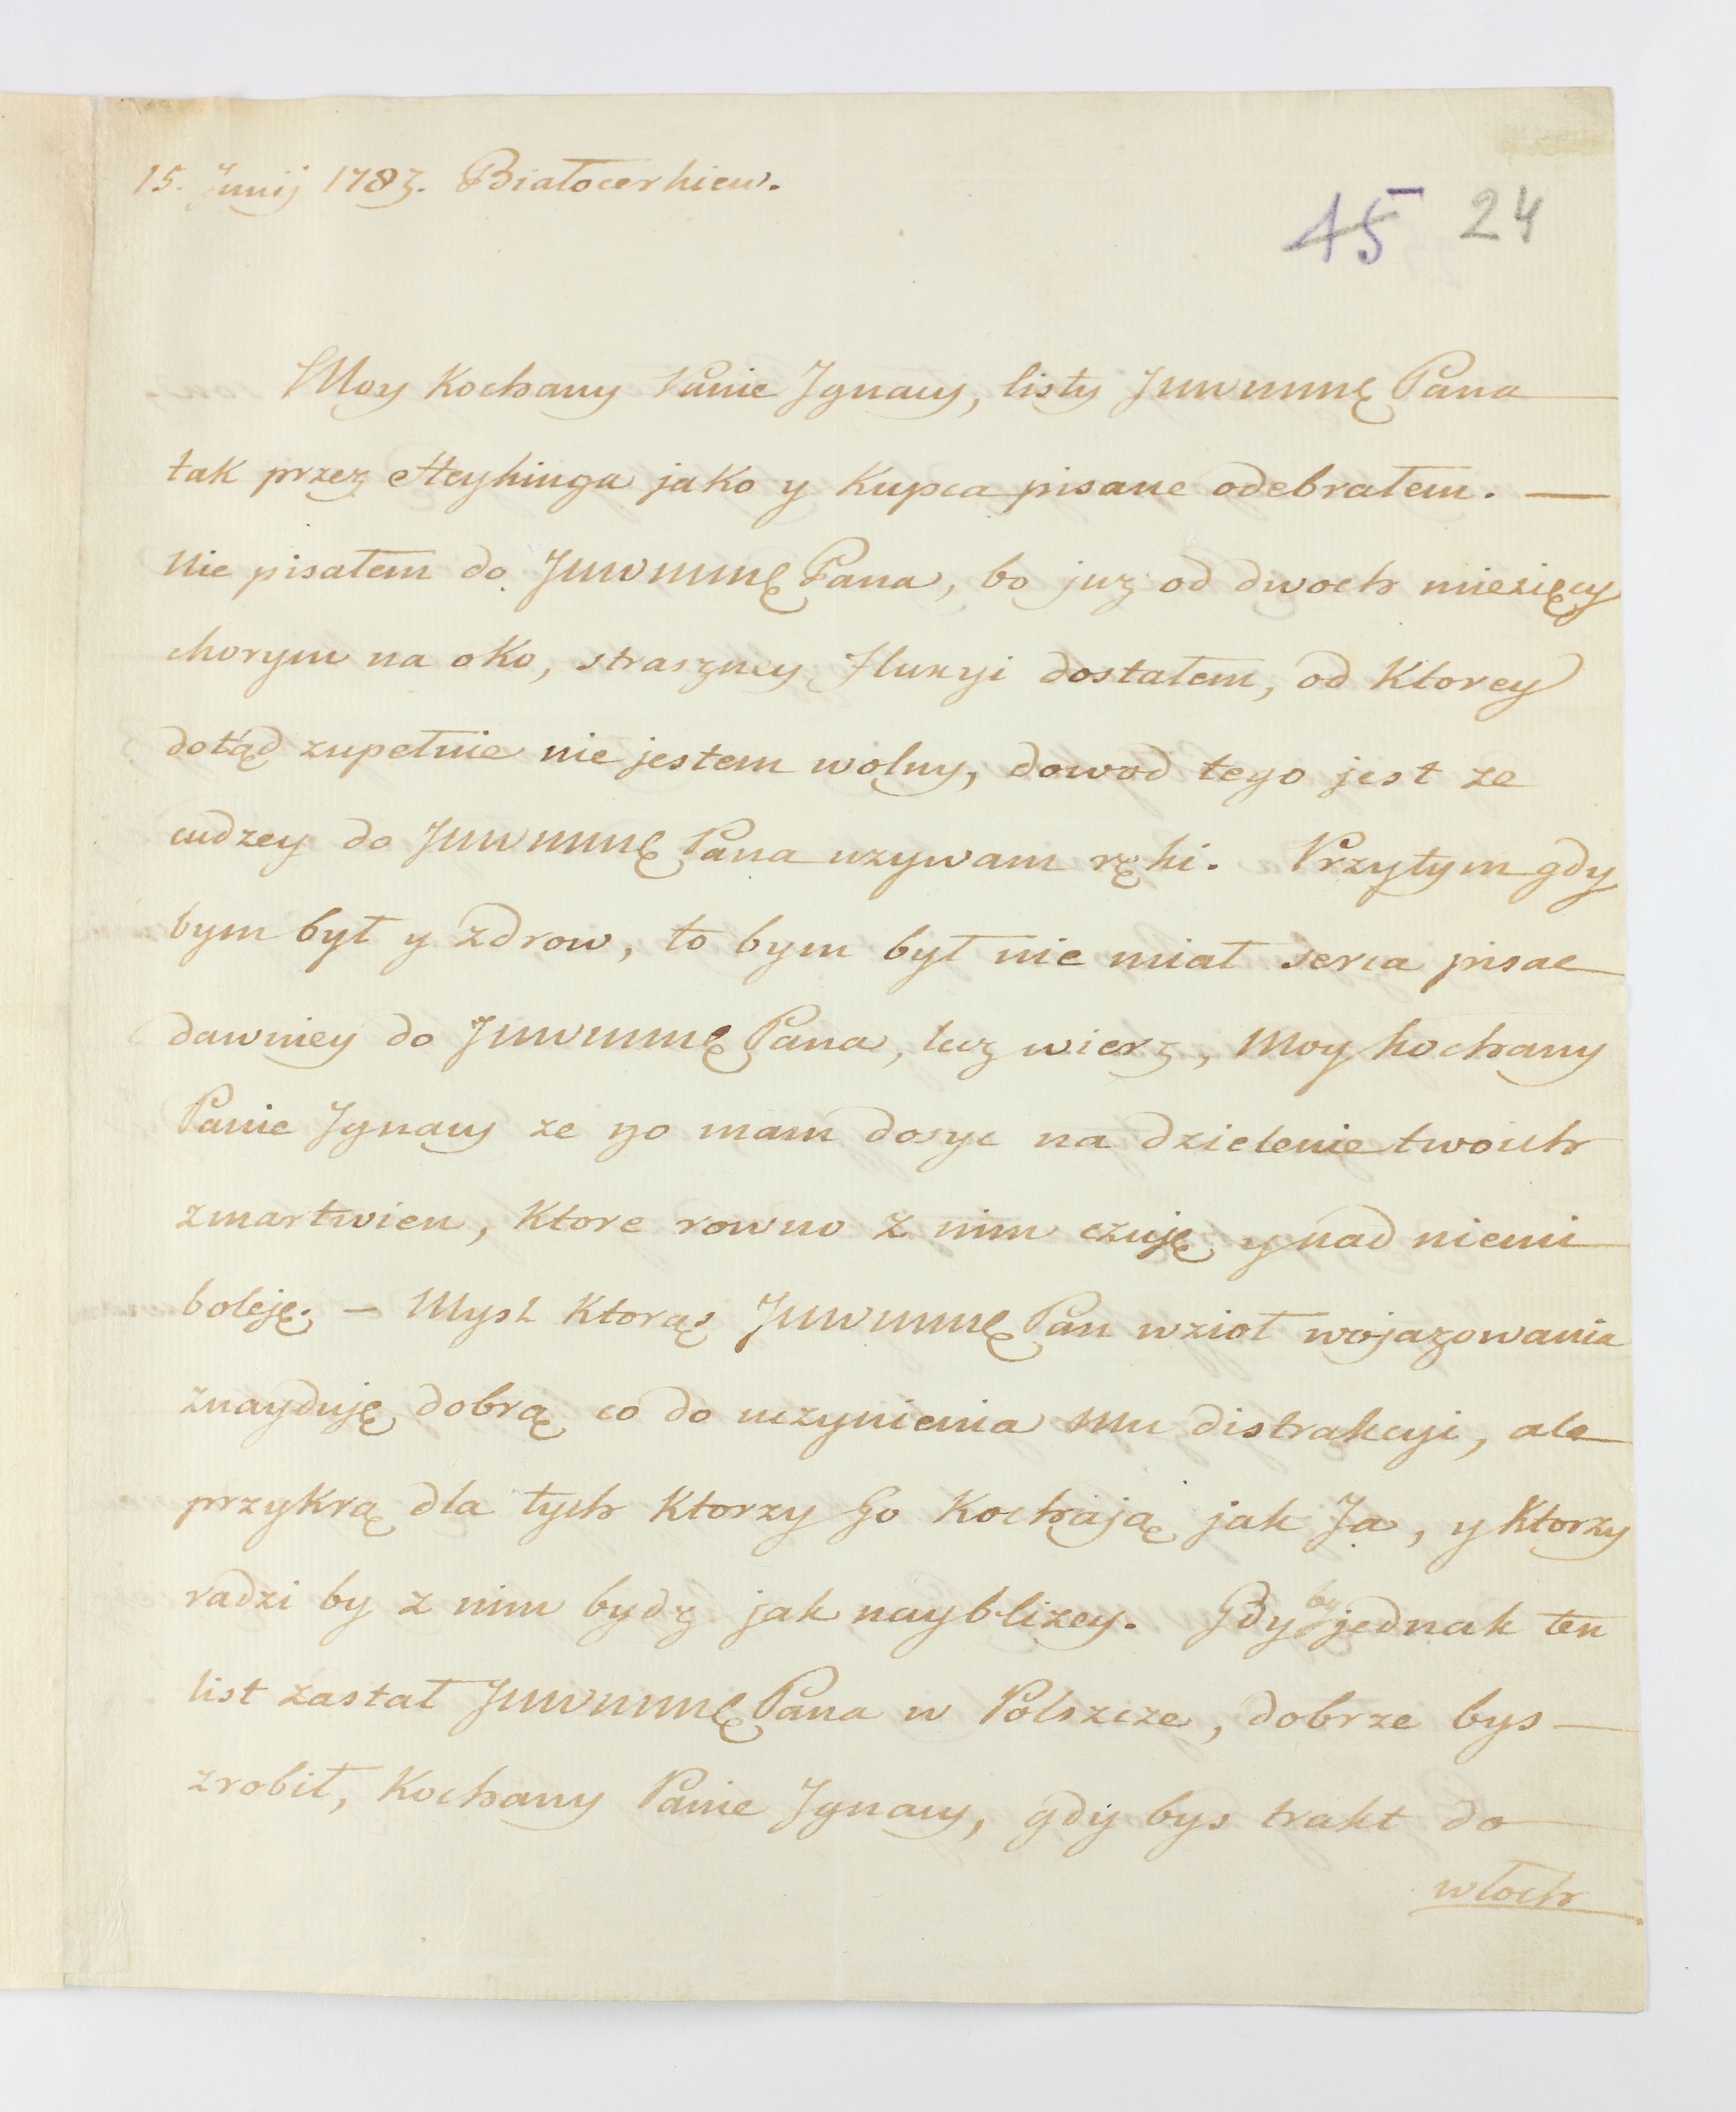 15. Junij 1783. Białocerkiew.
15 24
Moy Kochany Panie Jgnacy, listy JWWMMę Pana
tak przez Heykinga jako y Kupca pisane odebrałem. —
Nie pisałem do JWWMMę Pana, bo juz od dwoch miesięcy
chorym na oko, straszney Fluxyi dostałem, od Ktorey
dotąd zupełnie nie jestem wolny, dowod tego jest ze
cudzey do JWWMMę Pana uzywam ręki. Przytym gdy
bym był y zdrow, to bym był nie miał serca pisac
dawniey do JWWMMę Pana, lecz wierz, Moy kochany
Panie Jgnacy ze go mam dosyc na dzielenie twoich
zmartwien, Ktore rowno z nim czuję y nad niemi
boleję. — Mysl Ktorąs JWWMMę Pan wzioł wojazowania
znayduję dobrą co do uczynienia mu distrakcyi, ale
przykrą dla tych Ktorzy Go Kochają jak Ja, y Ktorzy
radzi by z nim bydz jak nayblizey. Gdyby jednak ten
list zastał JWWMMę Pana w Polszcze, dobrze bys
zrobił, Kochany Panie Jgnacy, gdy bys trakt do
włoch